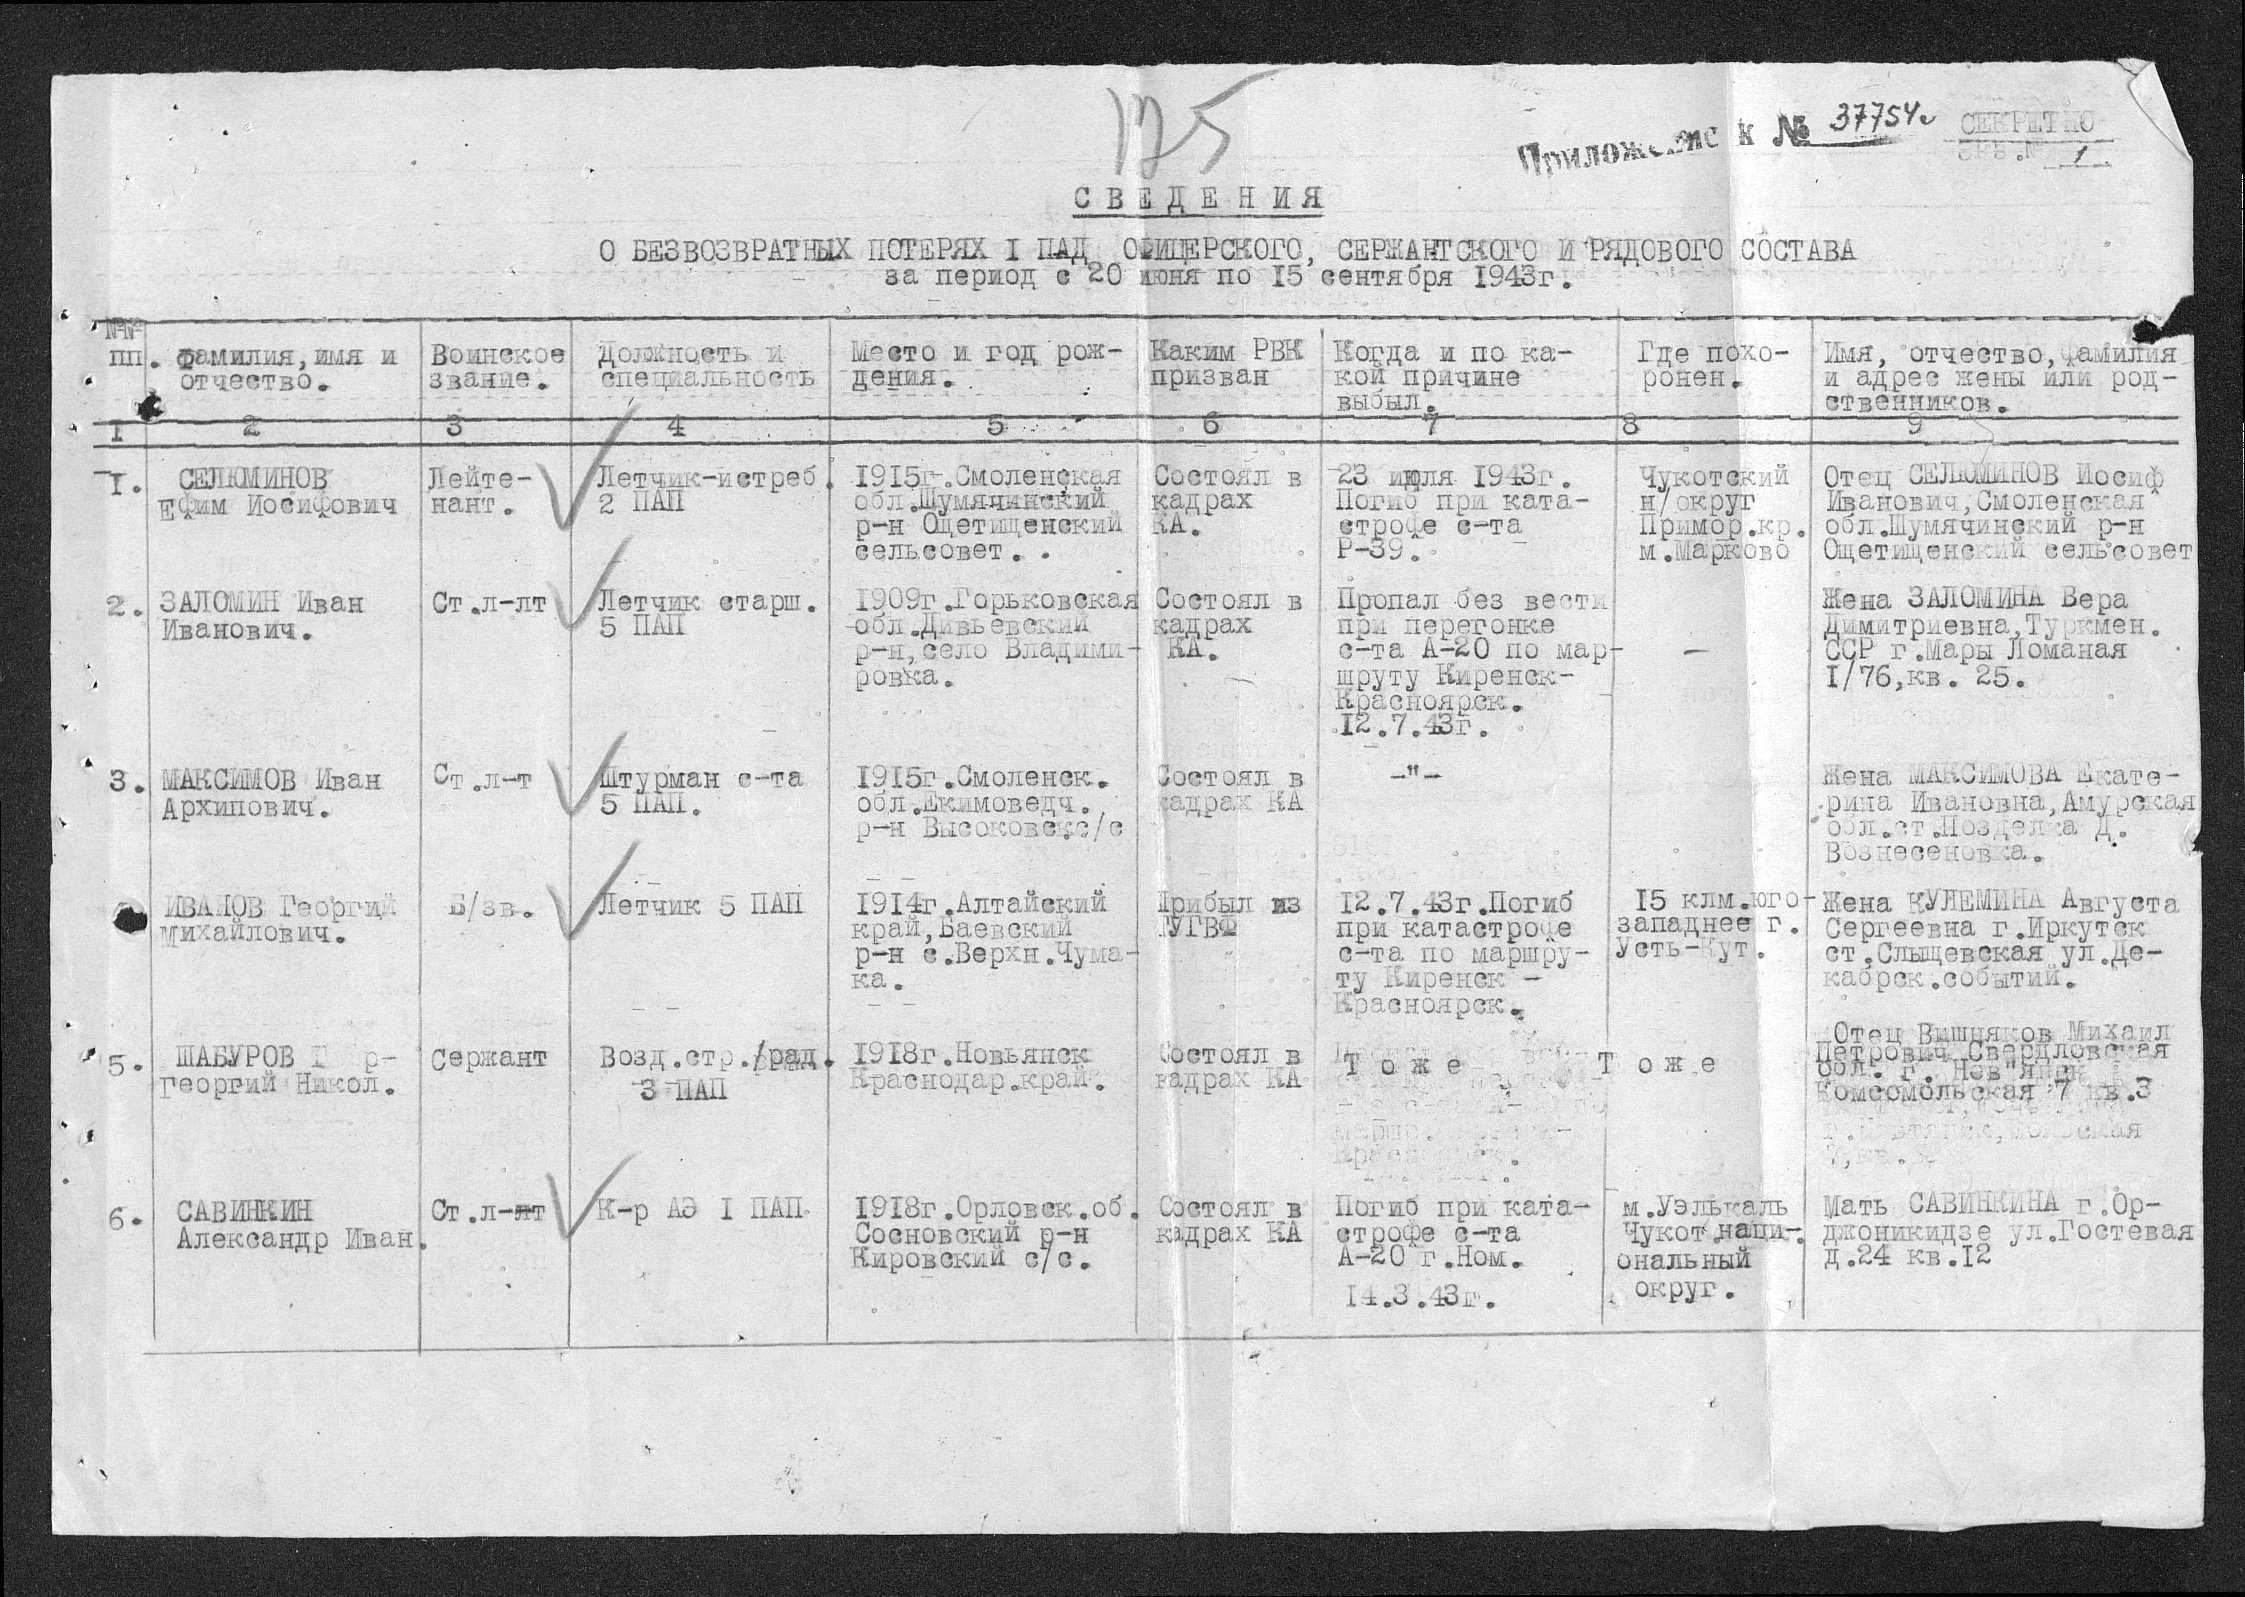 125
Приложение к № 37754с
СЕКРЕТНО
экз.№ 1
СВЕДЕНИЯ
О БЕЗВОЗВРАТНЫХ ПОТЕРЯХ I ПАД ОФИЦЕРСКОГО, СЕРЖАНТСКОГО И РЯДОВОГО СОСТАВА
за период с 20 июня по 15 сентября 1943г.
№№
пп.
фамилия,имя и
отчество.
Воинское
звание.
Должность и
специальность
Место и год рож-
дения.
Каким РВК
призван
Когда и по ка-
кой причине
выбыл.
Где похо-
ронен.
Имя, отчество,фамилия
и адрес жены или род-
ственников.
I 2 3 4 5 6 7 8 9
I.
СЕЛЮМИНОВ
Ефим Иосифович
Лейте-
нант.
Летчик-истреб.
2 ПАП
1915г.Смоленская
обл.Шумячинский
р-н Ощетищенский
сельсовет.
Состоял в
кадрах
КА.
23 июля 1943г.
Погиб при ката-
строфе с-та
Р-39.
Чукотский
н/округ
Примор.кр.
м.Марково
Отец СЕЛЮМИНОВ Иосиф
Иванович,Смоленская
обл.Шумячинский р-н
Ощетищенский сельсовет
2.
ЗАЛОМИН Иван
Иванович.
Ст.л-лт
Летчик старш.
5 ПАП
1909г.Горьковская
обл.Дивьевский
р-н,село Владими-
ровка.
Состоял в
кадрах
КА.
Пропал без вести
при перегонке
с-та А-20 по мар-
шруту Киренск-
Красноярск.
12.7.43г.
-
Жена ЗАЛОМИНА Вера
Димитриевна,Туркмен.
ССР г.Мары Ломаная
I/76,кв. 25.
3.
МАКСИМОВ Иван
Архипович.
Ст.л-т
Штурман с-та
5 ПАП.
1915г.Смоленск.
обл.Екимоведч.
р-н Высоковскс/с
Состоял в
кадрах КА
-"-
Жена МАКСИМОВА Екате-
рина Ивановна,Амурская
обл.ст.Позделка Д.
Вознесеновка.
ИВАНОВ Георгий
Михайлович.
Б/зв.
Летчик 5 ПАП
1914г.Алтайский
край,Баевский
р-н с.Верхн.Чума-
ка.
Прибыл из
ГУГВФ
12.7.43г.Погиб
при катастрофе
с-та по маршру-
ту Киренск -
Красноярск.
15 клм.юго-
западнее г.
Усть-Кут.
Жена КУЛЕМИНА Августа
Сергеевна г.Иркутск
ст.Слыщевская ул.Де-
кабрск.событий.
5.
ШАБУРОВ
Георгий Никол.
Сержант
Возд.стр./рад.
3 ПАП
1918г.Новьянск
Краснодар.край.
Состоял в
кадрах КА
Тоже
Тоже
Отец Вишняков Михаил
Петрович Свердловская
обл. г. Нев"янск
Комсомольская 7 кв.3
6.
САВИНКИН
Александр Иван.
Ст.л-лт
К-р АЭ I ПАП
1918г.Орловск.об.
Сосновский р-н
Кировский с/с.
Состоял в
кадрах КА
Погиб при ката-
строфе с-та
А-20 г.Ном.
14.3.43г.
м.Уэлькаль
Чукот.наци-
ональный
округ.
Мать САВИНКИНА г.Ор-
джоникидзе ул.Гостевая
д.24 кв.I2